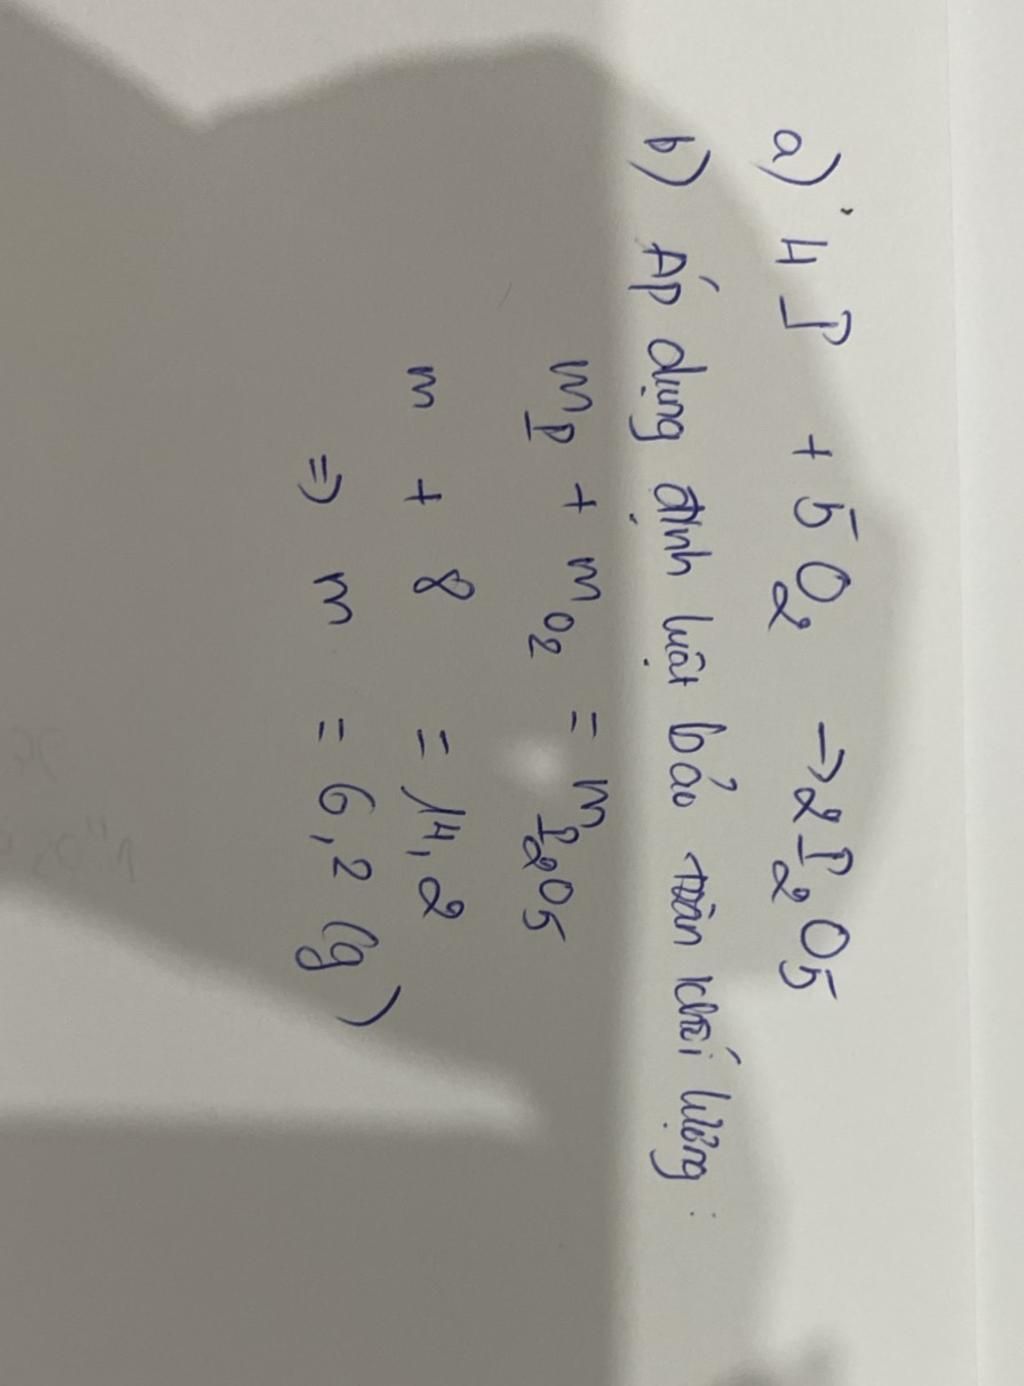 a) 4P + 5O₂ → 2P₂O₅
b) Áp dụng định luật bảo toàn khối lượng:
m_P + m_O₂ = m_P₂O₅
m + 8 = 14,2
=> m = 6,2 (g)